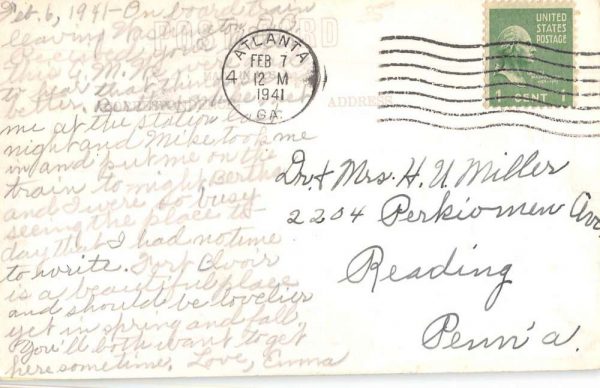 Feb. 6, 1941 - On board train
leaving Washington, D.C.
POST CARD
this A.M.
to hear that
better.
me at the station last
night and Mike took me
in and put me on the
train to-night. Bertha
and I were so busy
seeing the place to-
day that I had no time
to write. Fort Belvoir
is a beautiful place
and should be lovelier
yet in spring and fall.
You'll both want to get
here sometime. Love, Emma
ADDRESS
ATLANTA
4
FEB 7
12 M
1941
GA.
UNITED
STATES
POSTAGE
1 CENT 1
Dr & Mrs. H. U. Miller
2204 Perkiomen Ave
Reading
Penn'a.